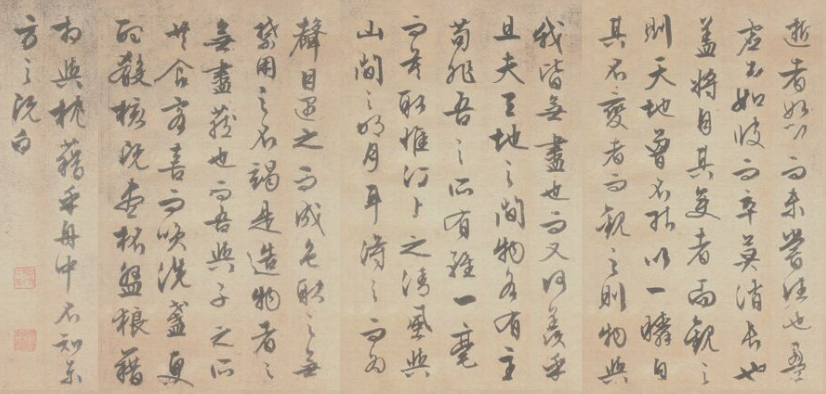 逝者如斯而未嘗往也盈
虛者如彼而卒莫消長也
蓋將自其變者而觀之
則天地曾不能以一瞬自
其不變者而觀之則物與
我皆無盡也而又何羨乎
且夫天地之間物各有主
苟非吾之所有雖一毫
而莫取惟江上之清風與
山間之明月耳得之而為
聲目遇之而成色取之無
禁用之不竭是造物者之
無盡藏也而吾與子之所
共食客喜而笑洗盞更
酌殽核既盡杯盤狼藉
相與枕藉乎舟中不知東
方之既白